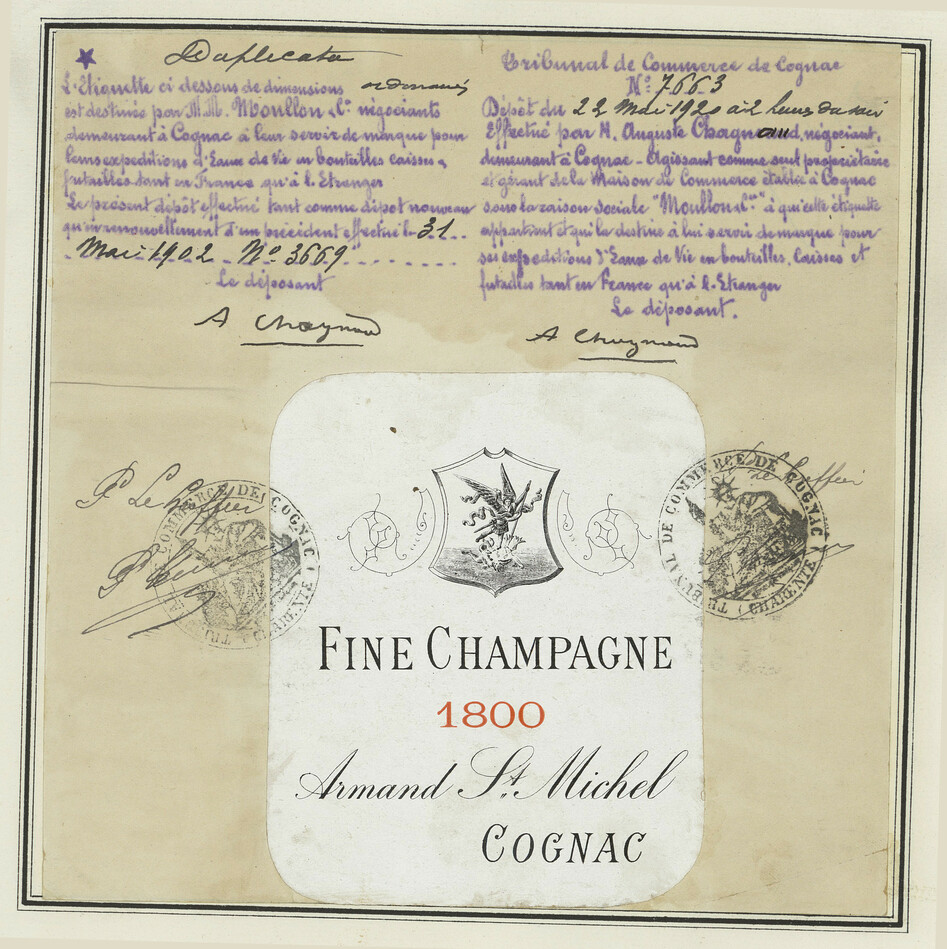 Duplicata
L'Etiquette ci dessous de dimensions ordonnées
est destinée par M.M. Moullon & Cie négociants
demeurant à Cognac à leur servir de marque pour
leurs expeditions d'Eaux de Vie en bouteilles caisses &
futailles tant en France qu'à l'Etranger
Le présent dépôt effectué tant comme dépot nouveau
qu'en renouvellement d'un précédent effectué le 31
Mai 1902 No 3669
Le déposant
A Chagnaud
Tribunal de Commerce de Cognac
No 7663
Dépôt du 22 Mai 1920 à 2 heures du soir
Effectué par M. Auguste Chagnaud, négociant,
demeurant à Cognac - Agissant comme seul propriétaire
et gérant de la Maison de Commerce établie à Cognac
sous la raison sociale "Moullon & Cie" à qui cette étiquette
appartient et qui la destine à lui servir de marque pour
ses expeditions d'Eaux de Vie en bouteilles, Caisses et
futailles tant en France qu'à l'Etranger
Le déposant.
A Chagnaud
P Le Greffier
COMMERCE DE COGNAC
(CHARENTE)
TRIBUNAL DE COMMERCE DE COGNAC
(CHARENTE)
FINE CHAMPAGNE
1800
Armand St. Michel
COGNAC